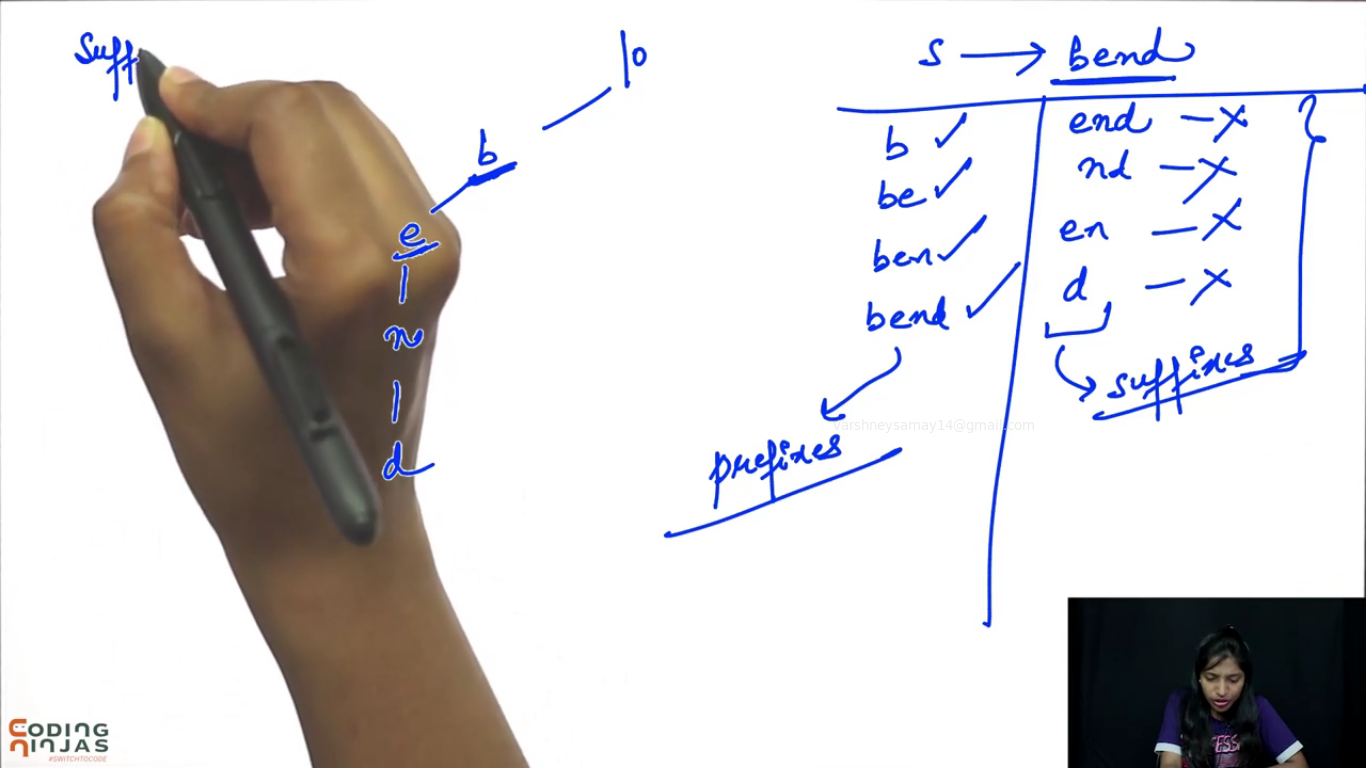 Suff
\0
b
e
n
d
s → bend
b ✓
be ✓
ben ✓
bend ✓
prefixes
end – ×
nd – ×
en – ×
d – ×
suffixes
varshneysamay14@gmail.com
CODING
NINJAS
#SWITCHTOCODE